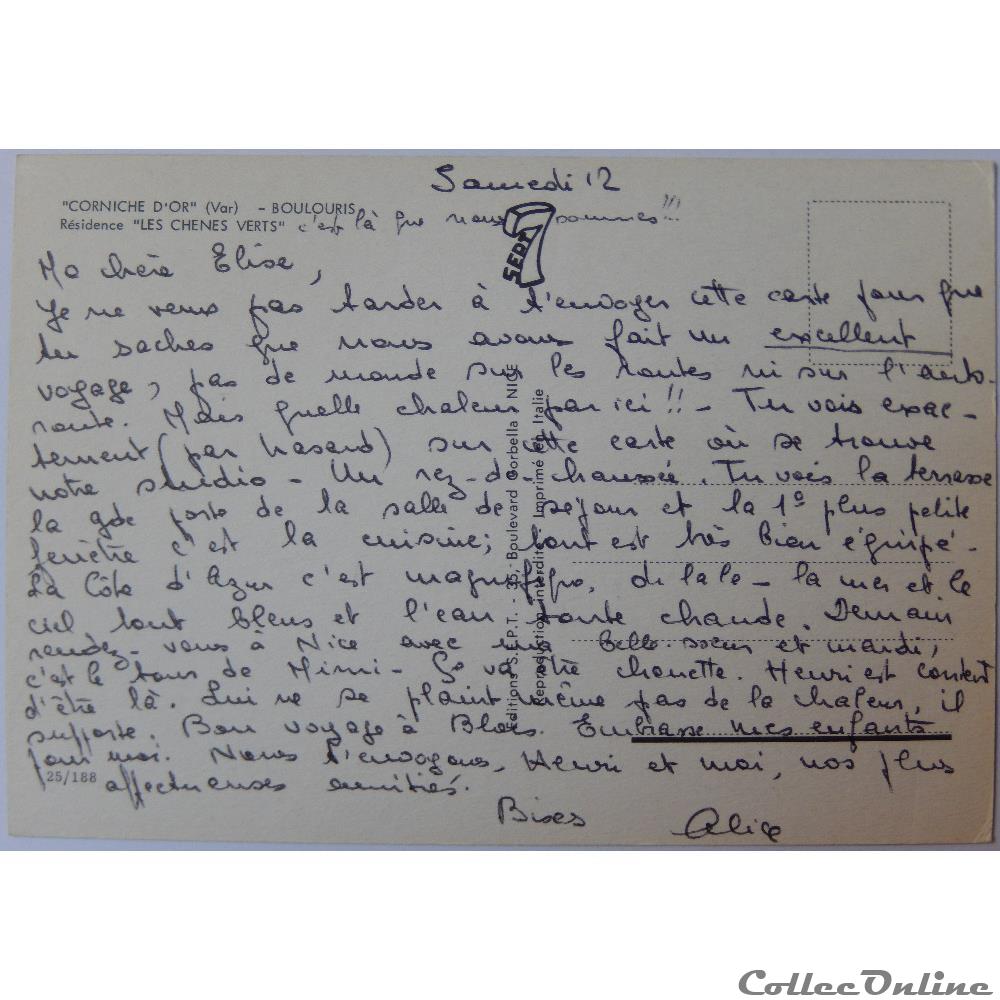 Samedi 12
"CORNICHE D'OR" (Var) - BOULOURIS
Résidence "LES CHENES VERTS" c'est là que nous sommes !!!
SEPT 7
Ma chère Elise,
Je ne veux pas tarder à t'envoyer cette carte pour que
tu saches que nous avons fait un excellent
voyage, pas de monde sur les routes ni sur l'auto-
route. Mais quelle chaleur par ici !! - Tu vois exac-
tement (par hasard) sur cette carte où se trouve
notre studio - Un rez-de-chaussée. Tu vois la terrasse
la gde porte de la salle de séjour et la 1e plus petite
fenêtre c'est la cuisine; tout est très bien équipé.
La Côte d'Azur c'est magnifique, - la mer et le
ciel tout bleus et l'eau toute chaude. Demain
rendez-vous à Nice avec ma belle-soeur et mardi,
c'est le tour de Mimi - Ça va être chouette. Henri est content
d'être là. Lui ne se plaint même pas de la chaleur, il
supporte. Bon voyage à Blois. Embrasse mes enfants
pour moi. Nous t'envoyons, Henri et moi, nos plus
affectueuses amitiés.
25/188
Bises Alice
Editions S.E.P.T. - 35, Boulevard Gorbella NICE
Reproduction interdite - Imprimé en Italie
CollecOnline